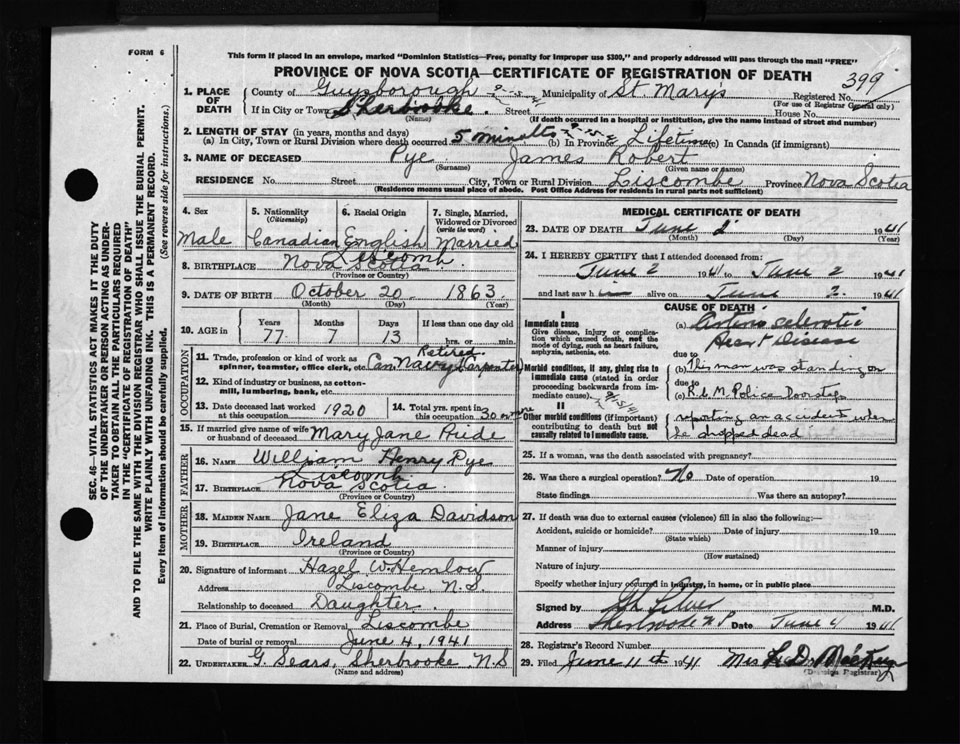 FORM 6
This form if placed in an envelope, marked "Dominion Statistics—Free, penalty for improper use $300," and properly addressed will pass through the mail "FREE"
PROVINCE OF NOVA SCOTIA—CERTIFICATE OF REGISTRATION OF DEATH
399
1. PLACE OF DEATH
County of Guysborough Municipality of St. Mary's Registered No.
(For use of Registrar General only)
If in City or Town Sherbrooke Street House No.
(Name) (If death occurred in a hospital or institution, give the name instead of street and number)
2. LENGTH OF STAY (in years, months and days)
(a) In City, Town or Rural Division where death occurred 5 minutes (b) In Province Lifetime (c) In Canada (if immigrant)
3. NAME OF DECEASED Pye James Robert
(Surname) (Given name or names)
RESIDENCE No. Street City, Town or Rural Division Liscombe Province Nova Scotia
(Residence means usual place of abode. Post Office Address for residents in rural parts not sufficient)
4. Sex 5. Nationality (Citizenship) 6. Racial Origin 7. Single, Married, Widowed or Divorced (write the word)
Male Canadian English Married
Liscomb
8. BIRTHPLACE Nova Scotia
(Province or Country)
9. DATE OF BIRTH October 20 1863
(Month) (Day) (Year)
10. AGE in Years Months Days If less than one day old
77 7 13 hrs. or min.
OCCUPATION
11. Trade, profession or kind of work as spinner, teamster, office clerk, etc. Retired Can Navy Carpenter
12. Kind of industry or business, as cotton-mill, lumbering, bank, etc.
13. Date deceased last worked at this occupation 1920 14. Total yrs. spent in this occupation 30
15. If married give name of wife or husband of deceased Mary Jane Pride
FATHER
16. NAME William Henry Pye
Liscomb
17. BIRTHPLACE Nova Scotia
(Province or Country)
MOTHER
18. MAIDEN NAME Jane Eliza Davidson
19. BIRTHPLACE Ireland
(Province or Country)
20. Signature of informant Hazel W. Hemlow
Address Liscombe, N.S.
Relationship to deceased Daughter
21. Place of Burial, Cremation or Removal Liscombe
Date of burial or removal June 4, 1941
22. UNDERTAKER G. Sears, Sherbrooke N.S
(Name and address)
MEDICAL CERTIFICATE OF DEATH
23. DATE OF DEATH June 2 1941
(Month) (Day) (Year)
24. I HEREBY CERTIFY that I attended deceased from:
June 2 1941 to June 2 1941
and last saw h im alive on June 2 1941
CAUSE OF DEATH
I
Immediate cause
Give disease, injury or complication which caused death, not the mode of dying, such as heart failure, asphyxia, asthenia, etc.
(a) Arterio sclerotic
Heart Disease
due to
Morbid conditions, if any, giving rise to immediate cause (stated in order proceeding backwards from immediate cause)
(b) This man was standing on
due to
(c) R.C.M. Police Doorsteps
II
Other morbid conditions (if important) contributing to death but not causally related to immediate cause.
reporting an accident when
he dropped dead
25. If a woman, was the death associated with pregnancy?
26. Was there a surgical operation? No Date of operation 19
State findings Was there an autopsy?
27. If death was due to external causes (violence) fill in also the following:—
Accident, suicide or homicide? Date of injury 19
(State which)
Manner of injury
(How sustained)
Nature of injury
Specify whether injury occurred in industry, in home, or in public place
Signed by M.D.
Address Sherbrooke N.S. Date June 4 1941
28. Registrar's Record Number
29. Filed June 11th 1941 Mrs L. D. McKay
(Division Registrar)
SEC. 46—VITAL STATISTICS ACT MAKES IT THE DUTY
OF THE UNDERTAKER OR PERSON ACTING AS UNDER-
TAKER TO OBTAIN ALL THE PARTICULARS REQUIRED
IN THE "CERTIFICATE OF REGISTRATION OF DEATH"
AND TO FILE THE SAME WITH THE DIVISION REGISTRAR WHO SHALL ISSUE THE BURIAL PERMIT.
WRITE PLAINLY WITH UNFADING INK. THIS IS A PERMANENT RECORD.
Every item of information should be carefully supplied. (See reverse side for instructions.)